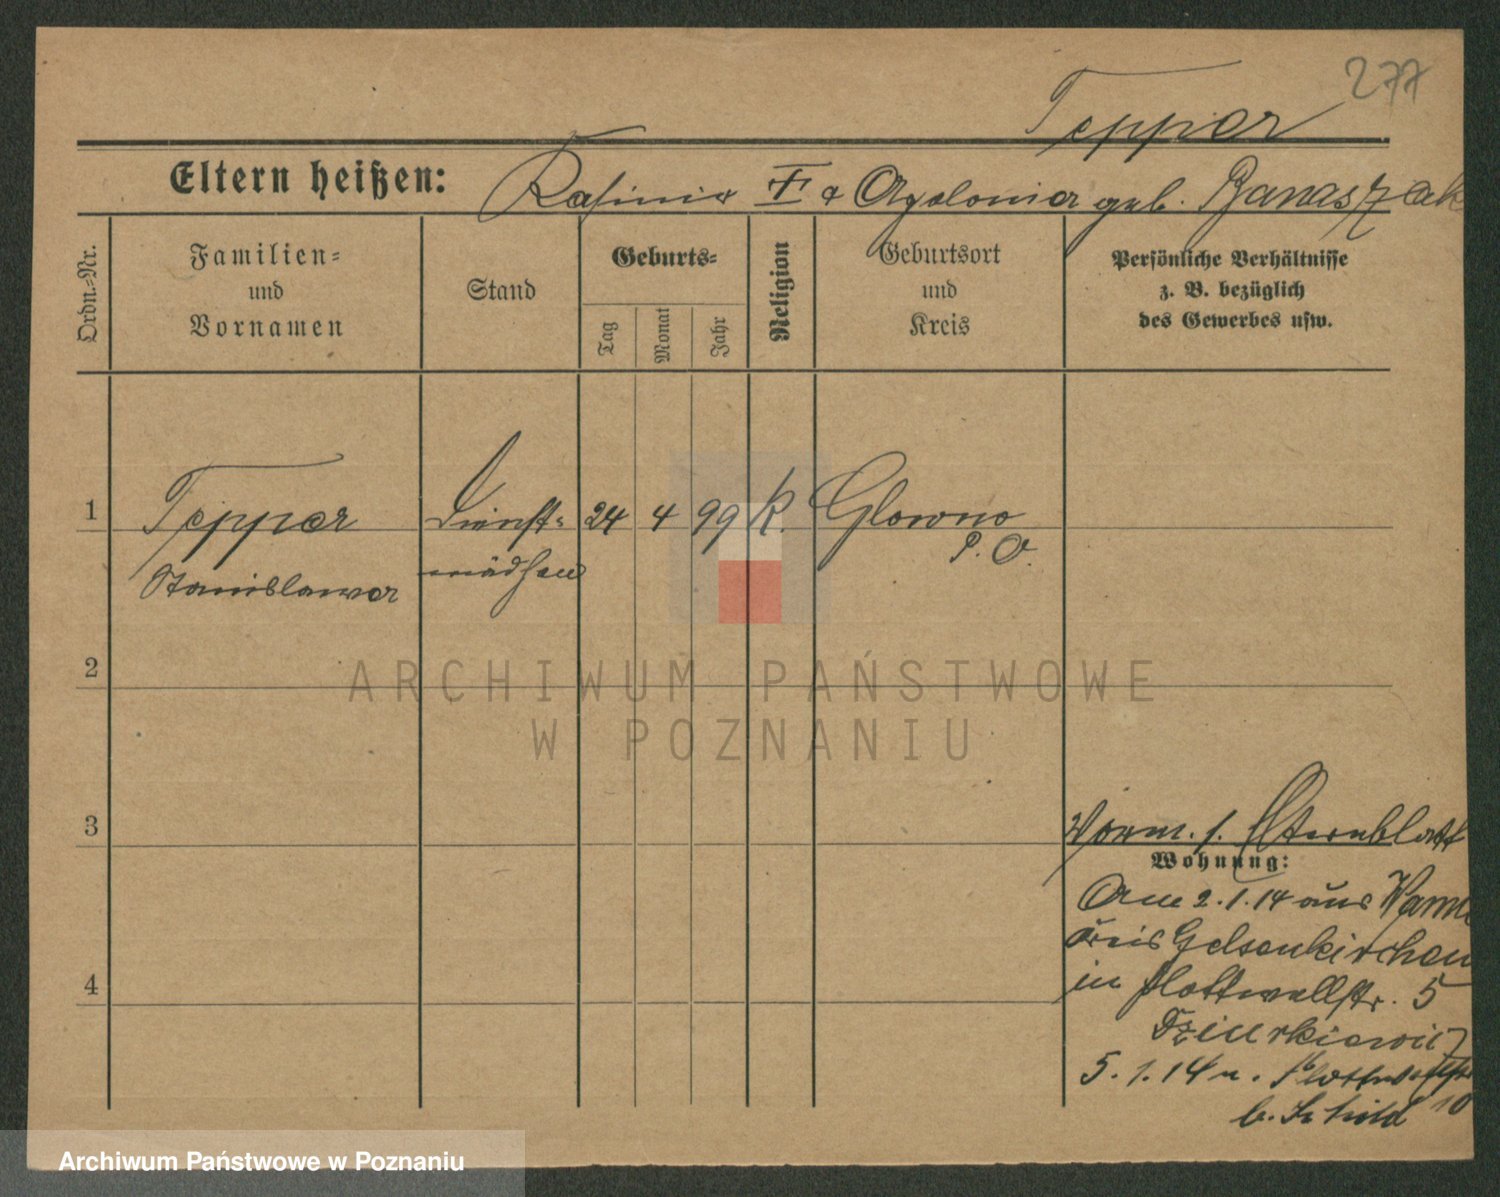 277
Tepper
Eltern heißen: Kasimir † & Apolonia geb. Banaszak
Ordn.-Nr.
Familien-
und
Vornamen
Stand
Geburts-
Tag
Monat
Jahr
Religion
Geburtsort
und
Kreis
Persönliche Verhältnisse
z. B. bezüglich
des Gewerbes usw.
1
Tepper
Stanislawa
Dienst-
mädchen
24
4
99
K.
Glowno
P. O.
2
3
4
Vorm. s. Elternblatt
Wohnung:
Am 2.1.14 aus Wanne
Kreis Gelsenkirchen
in Flottwellstr. 5
Dziurkiewicz
5.1.14 n. Flottwellstr 10
b. Schild
ARCHIWUM PAŃSTWOWE
W POZNANIU
Archiwum Państwowe w Poznaniu